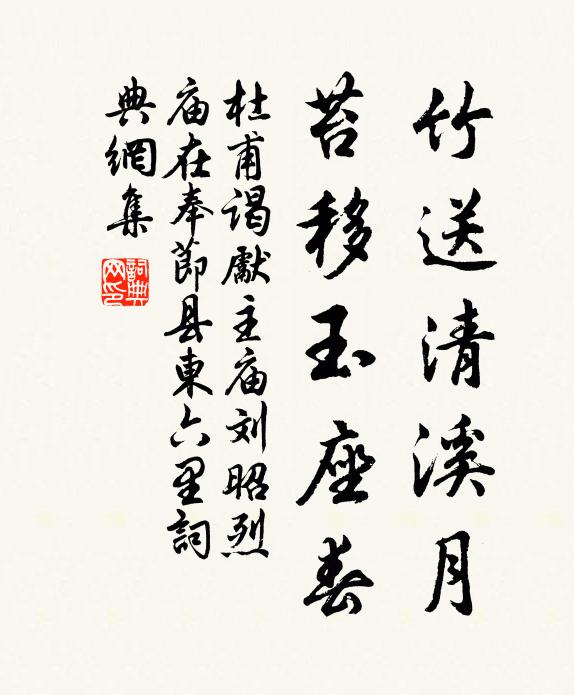 竹送清溪月
苔移玉座春
杜甫谒献主庙刘昭烈
庙在奉节县東六里詞
典網集
詞典网印